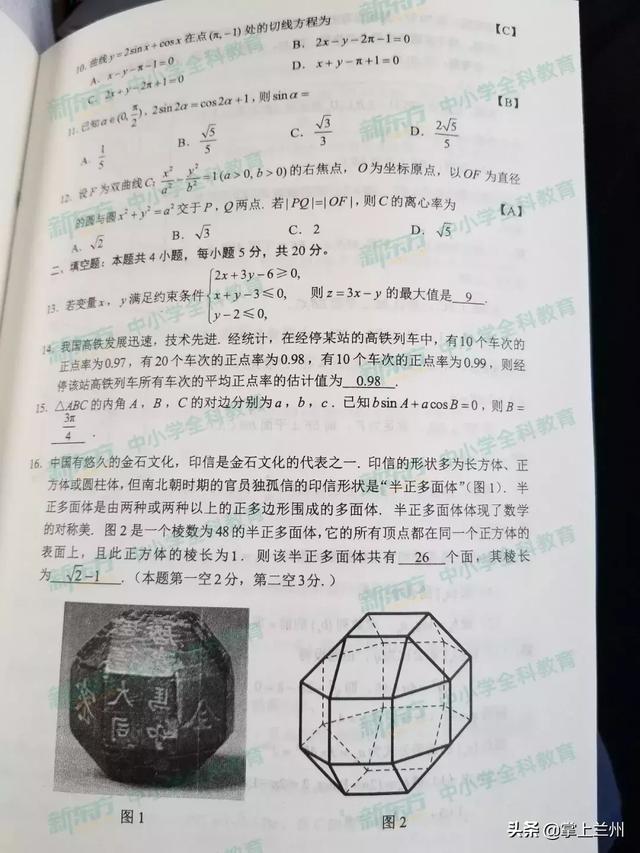 10. 曲线 y=2sin x+cos x 在点(π,-1)处的切线方程为 【C】
A. x-y-π-1=0 B. 2x-y-2π-1=0
C. 2x+y-2π+1=0 D. x+y-π+1=0
11. 已知α∈(0, π/2), 2sin2α=cos2α+1, 则sinα= 【B】
A. 1/5 B. √5/5 C. √3/3 D. 2√5/5
12. 设F为双曲线C: x²/a²-y²/b²=1(a>0, b>0)的右焦点, O为坐标原点, 以OF为直径
的圆与圆x²+y²=a²交于P, Q两点. 若|PQ|=|OF|, 则C的离心率为 【A】
A. √2 B. √3 C. 2 D. √5
二、填空题:本题共4小题,每小题5分,共20分。
13. 若变量x, y满足约束条件{2x+3y-6≥0, x+y-3≤0, y-2≤0, 则z=3x-y的最大值是 9 .
14. 我国高铁发展迅速,技术先进. 经统计, 在经停某站的高铁列车中, 有10个车次的
正点率为0.97, 有20个车次的正点率为0.98, 有10个车次的正点率为0.99, 则经
停该站高铁列车所有车次的平均正点率的估计值为 0.98 .
15. △ABC的内角A, B, C的对边分别为a, b, c. 已知bsin A+acos B=0, 则B=
3π/4 .
16. 中国有悠久的金石文化, 印信是金石文化的代表之一. 印信的形状多为长方体、正
方体或圆柱体, 但南北朝时期的官员独孤信的印信形状是“半正多面体”(图1). 半
正多面体是由两种或两种以上的正多边形围成的多面体. 半正多面体体现了数学
的对称美. 图2是一个棱数为48的半正多面体, 它的所有顶点都在同一个正方体的
表面上, 且此正方体的棱长为1. 则该半正多面体共有 26 个面, 其棱长
为 √2-1 .(本题第一空2分, 第二空3分.)
图1
图2
新东方 中小学全科教育
头条 @掌上兰州